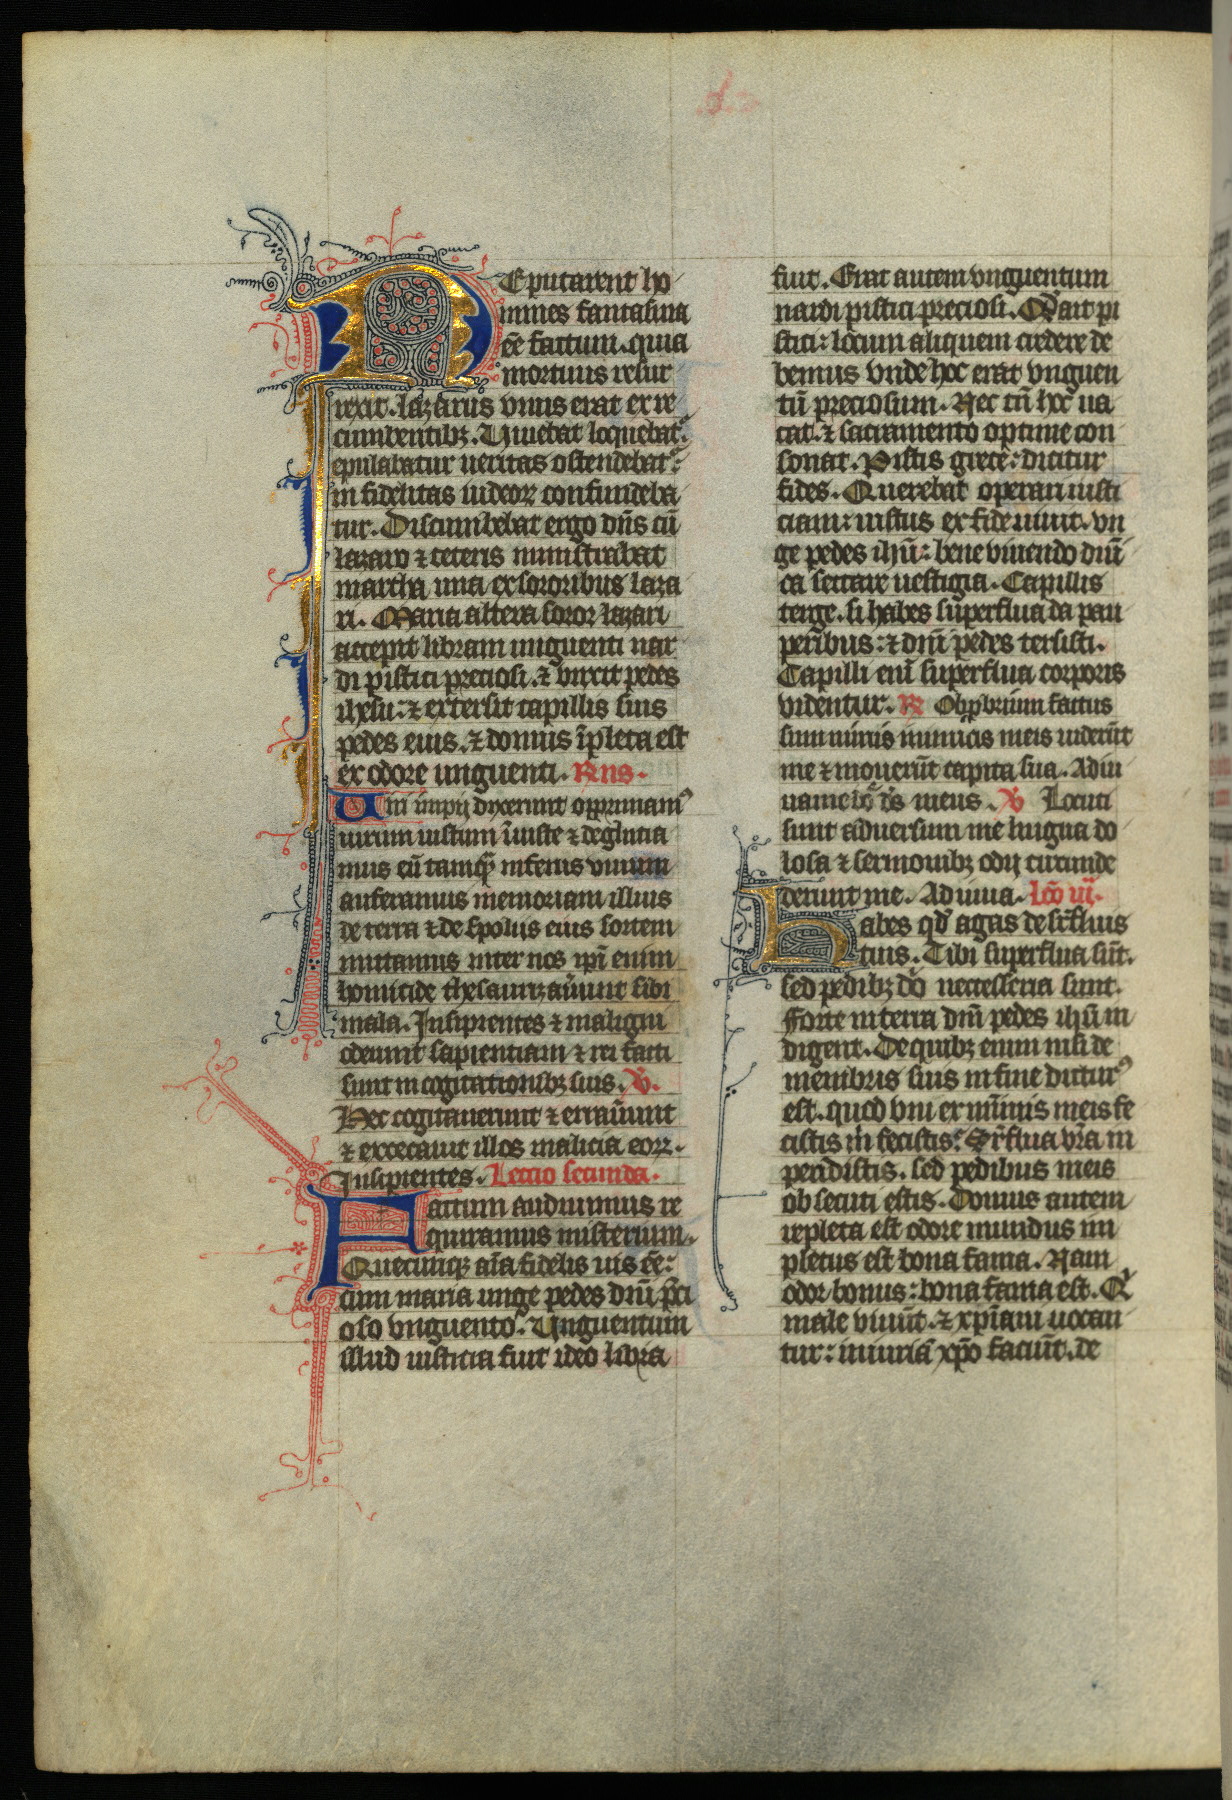 NE putarent ho
mines fantasma
eē factum. quia
mortuus resur
rexit. lazarus vnus erat ex re
cumbentibꝫ. Viuebat loquebat᷑.
epulabatur ueritas ostendebat᷑:
in fidelitas iudeoꝝ confundeba
tur. Discumbebat ergo dn̄s cū
lazaro ⁊ ceteris ministrabat
martha una ex sororibus laza
ri. Maria altera soror lazari
accepit libram unguenti nar
di pistici preciosi. ⁊ vnxit pedes
ihesu: ⁊ extersit capillis suis
pedes eius. ⁊ domus īpleta est
ex odore unguenti. Rns.
Uiri impij dixerunt opprimamꝰ
uirum iustum iniuste ⁊ degluția
mus eū tamqͣ infernus viuum
auferamus memoriam illius
de terra ⁊ de spoliis eius sortem
mittamus inter nos ipi enim
homicide thesaurizauerunt sibi
mala. Insipientes ⁊ maligni
oderunt sapientiam ⁊ rei facti
sunt in cogitationibꝫ suis. V.
Hec cogitauerunt ⁊ errauerunt
⁊ excecauit illos malicia eoꝝ.
Insipientes. Lectio secunda.
Factum audiuimus re
quiramus misterium.
Quecunqꝫ aīa fidelis uis eē:
cum maria unge pedes dn̄i p̄ci
oso vnguento. Unguentum
illud iusticia fuit ideo libra
fuit. Erat autem vnguentum
nardi pistici preciosi. Q͛d ait pi
stici: locum aliquem credere de
bemus vnde hoc erat vnguen
tū preciosum. Nec tn̄ hoc ua
cat. ⁊ sacramento optime con
sonat. Pistis grece: dicitur
fides. Querebat operari iusti
ciam: iustus ex fide uiuit. vn
ge pedes ihū: bene viuendo dn̄i
ca sectare uestigia. Capillis
terge. si habes superflua da pau
peribus: ⁊ dn̄i pedes tersisti.
Capilli enī superflua corporis
videntur. R Obprbrium factus
sum nimis inimicis meis uiderūt
me ⁊ mouerūt capita sua. Adiu
uame dn̄e ds̄ meus. V Locuti
sunt aduersum me lingua do
losa ⁊ sermonibꝫ odij circumde
derunt me. Adiuua. lc̄o iij.
Habes qd̄ agas de suꝑfluis
tuis. Tibi superflua sūt.
sed pedibꝫ dn̄i necessaria sunt.
Forte in terra dn̄i pedes ihū in
digent. De quibꝫ enim nisi de
membris suis in fine dicturꝰ
est. quod vni ex minimis meis fe
cistis m̄ fecistis: Suꝑflua vr̄a in
pendistis. sed pedibus meis
obsecuti estis. Domus autem
repleta est odore mundus im
pletus est bona fama. Nam
odor bonus: bona fama est. Q͛
male viuūt. ⁊ xp̄iani uocan
tur: iniuriā xp̄o faciūt. de